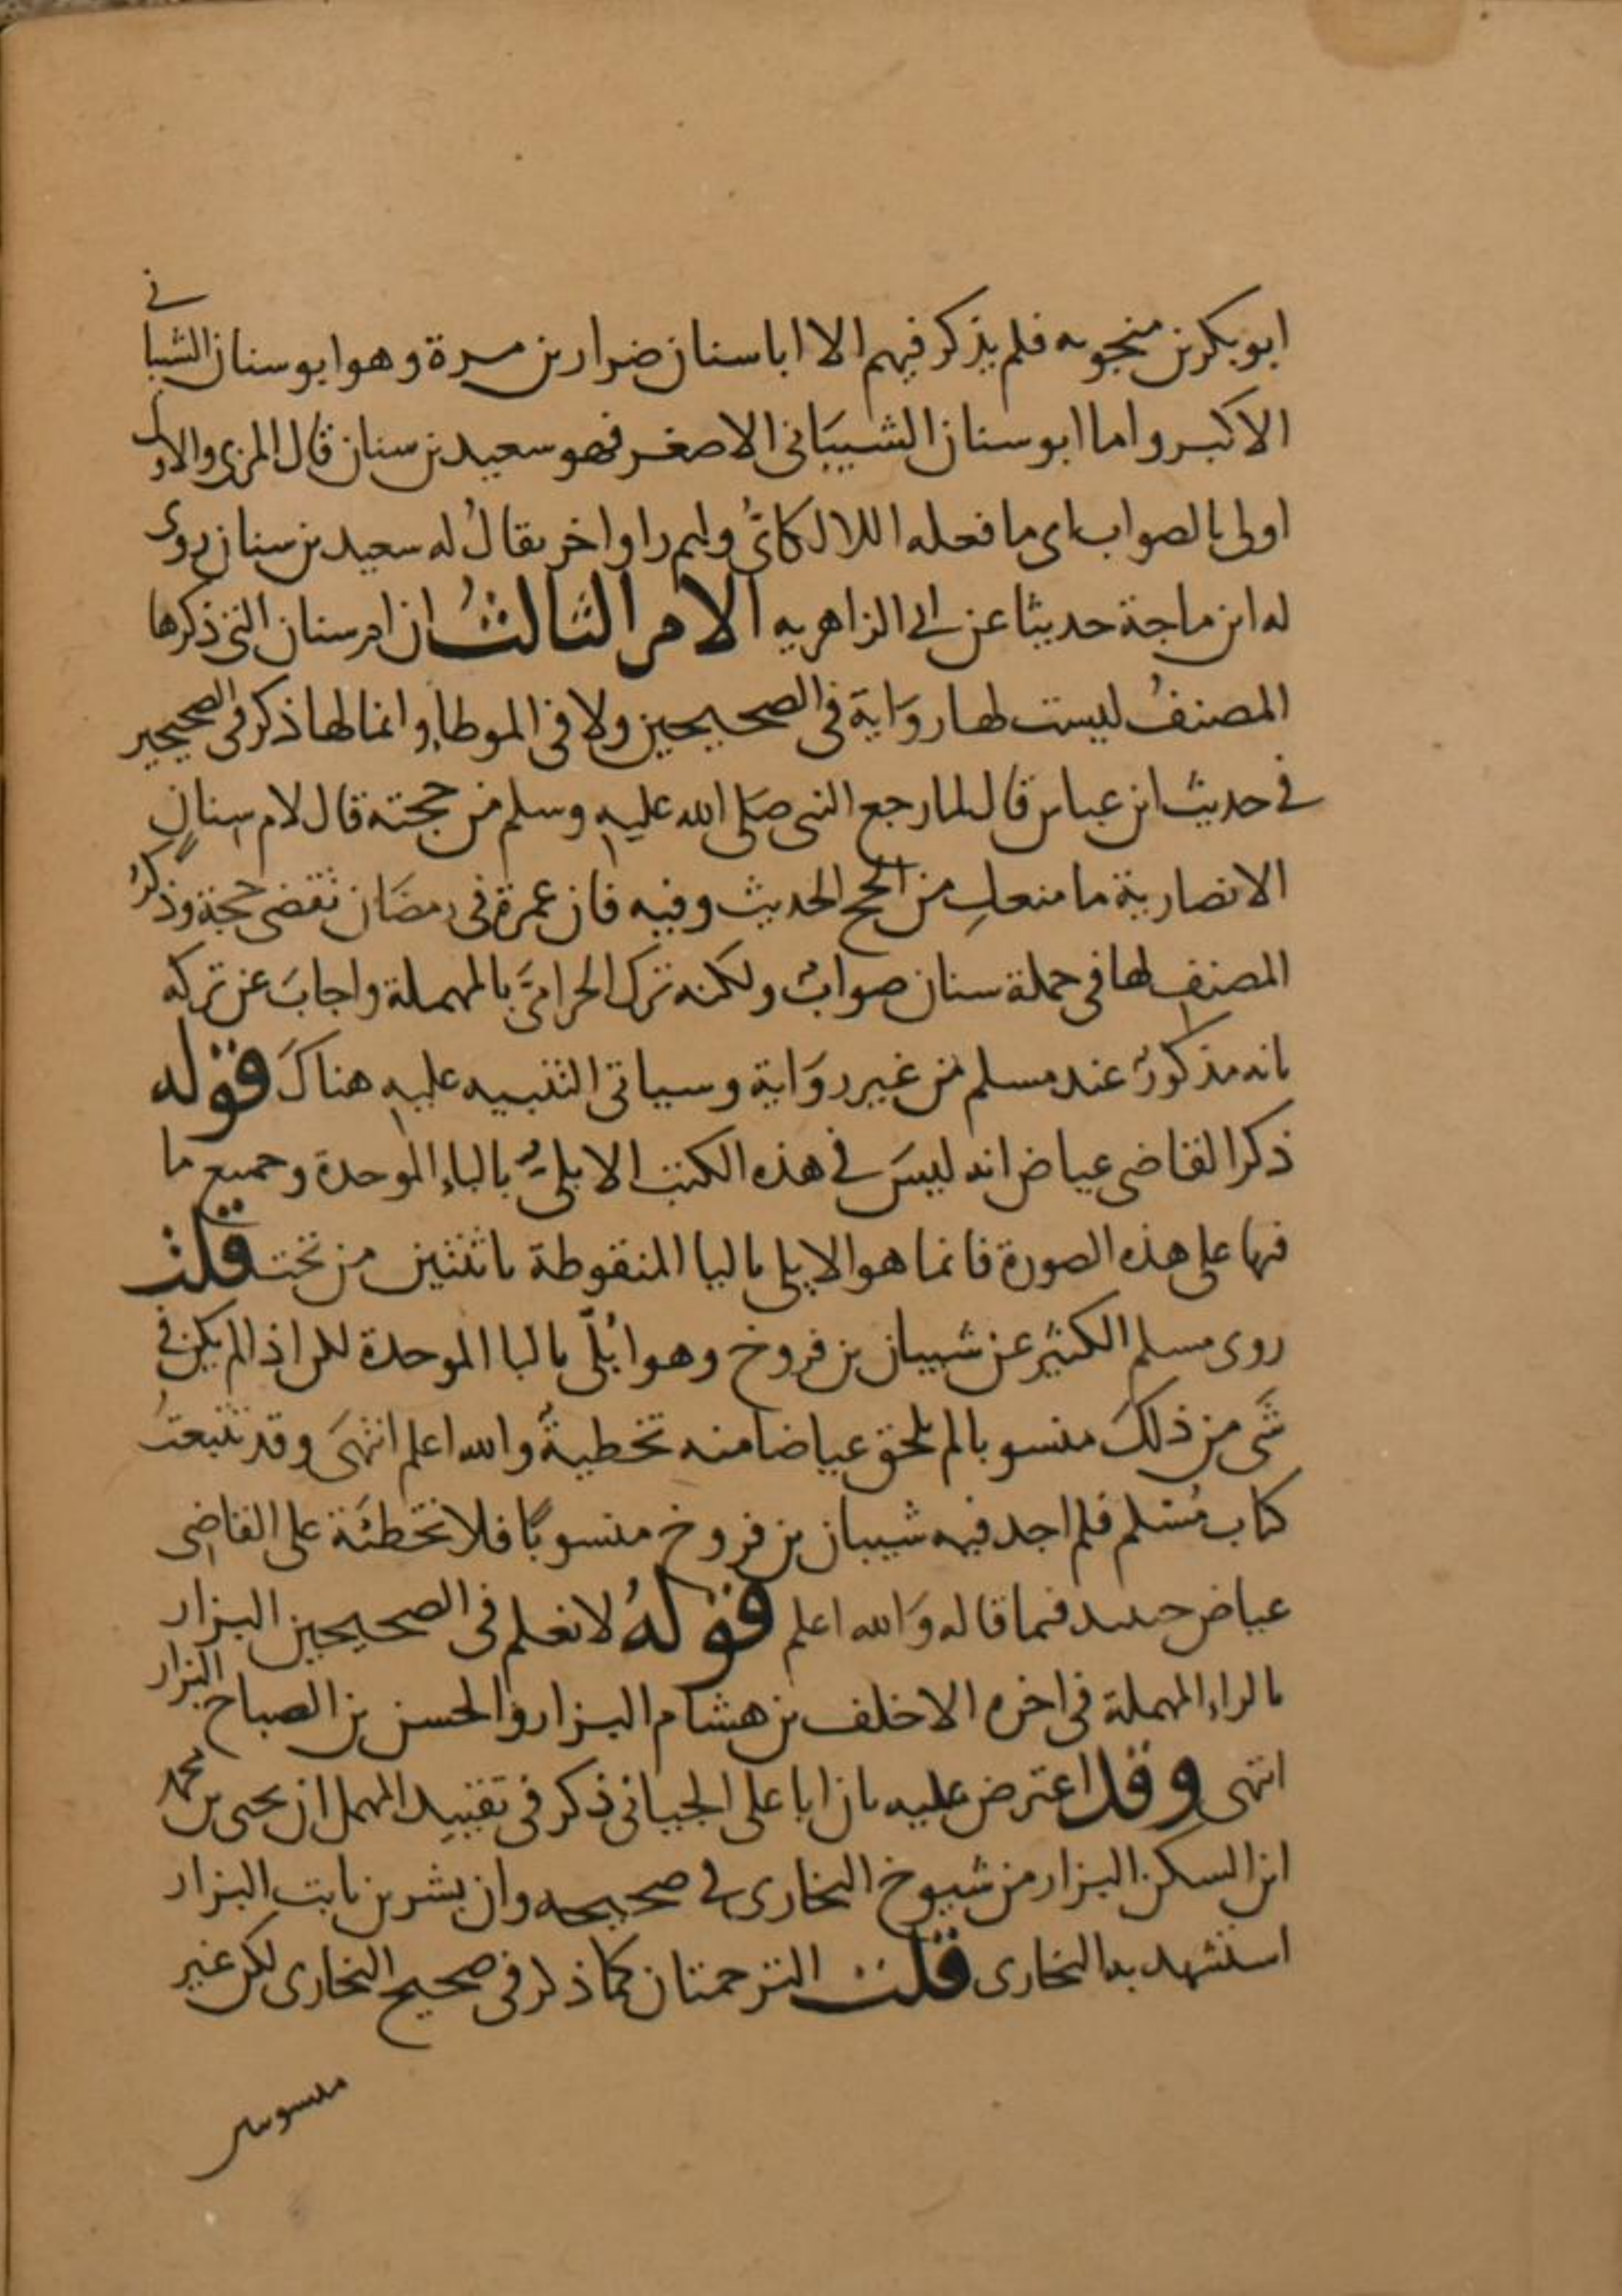 ابو بكر بن منجويه فلم يذكر فيهم الا ابا سنان ضرار بن مرة وهو ابو سنان الشيباني
الاكبر واما ابو سنان الشيبَانى الاصغر فهو سعيد بن سنان قال المزى والاول
اولى بالصواب اى ما فعله اللالكائىُّ ولهم راو اخر يقالُ له سعيد بن سنان روى
له ابن ماجة حديثا عن ابى الزاهريه الامر الثالثُ ان ام سنان التى ذكرها
المصنفُ ليست لها روَاية فى الصحيحين ولا فى الموطاء وانما لها ذكر فى الصحيحين
فى حديث ابن عباس قال لما رجع النبى صَلى الله عليه وسلم من حجته قال لام سنانٍ
الانصارية ما منعكِ من الحج الحديث وفيه فان عمرة فى رمضَان تقضى حجة وذكرُ
المصنفِ لها فى جملة سنان صوابٌ ولكنه ترك الحرامىَّ بالمهملة واجابَ عن تركه
بانه مذكورٌ عند مسلم من غير روَاية وسياتى التنبيه عليه هناكَ قوله
ذكر القاضى عياض انه ليسَ فى هذه الكتب الابلىُّ بالباءِ الموحدة وجميع ما
فيها على هذه الصورة فانما هو الايلى باليا المنقوطة باثنتين من تحت قلت
روى مسلم الكثير عن شيبان بن فروخ وهو ابُلّى بالبا الموحدة لكن اذا لم يكن فى
شَى من ذلكَ منسوبا لم يلحق عياضا منه تخطيةٌ والله اعلم انتهىَ وقد تتبعتُ
كتاب مُسْلم فلم اجد فيه شيبان بن فروخ منسوبًا فلا تخطئَة على القاضِى
عياض حينيد فيما قاله وَالله اعلم قولهُ لا نعلم فى الصحيحين البزار
بالراء المهملة فى اخره الا خلف بن هشام البزار والحسن بن الصباح البزار
انتهى وقد اعترض عليه بان ابا على الجيانى ذكر فى تقييد المهمل ان يحيى بن محمد
ابن السكن البزار من شيوخ البخارى فى صحيحه وان بشر بن ثابت البزار
استشهد به البخارى قلت الترجمتان كما ذكر فى صحيح البخارى لكن غير
منسوبين